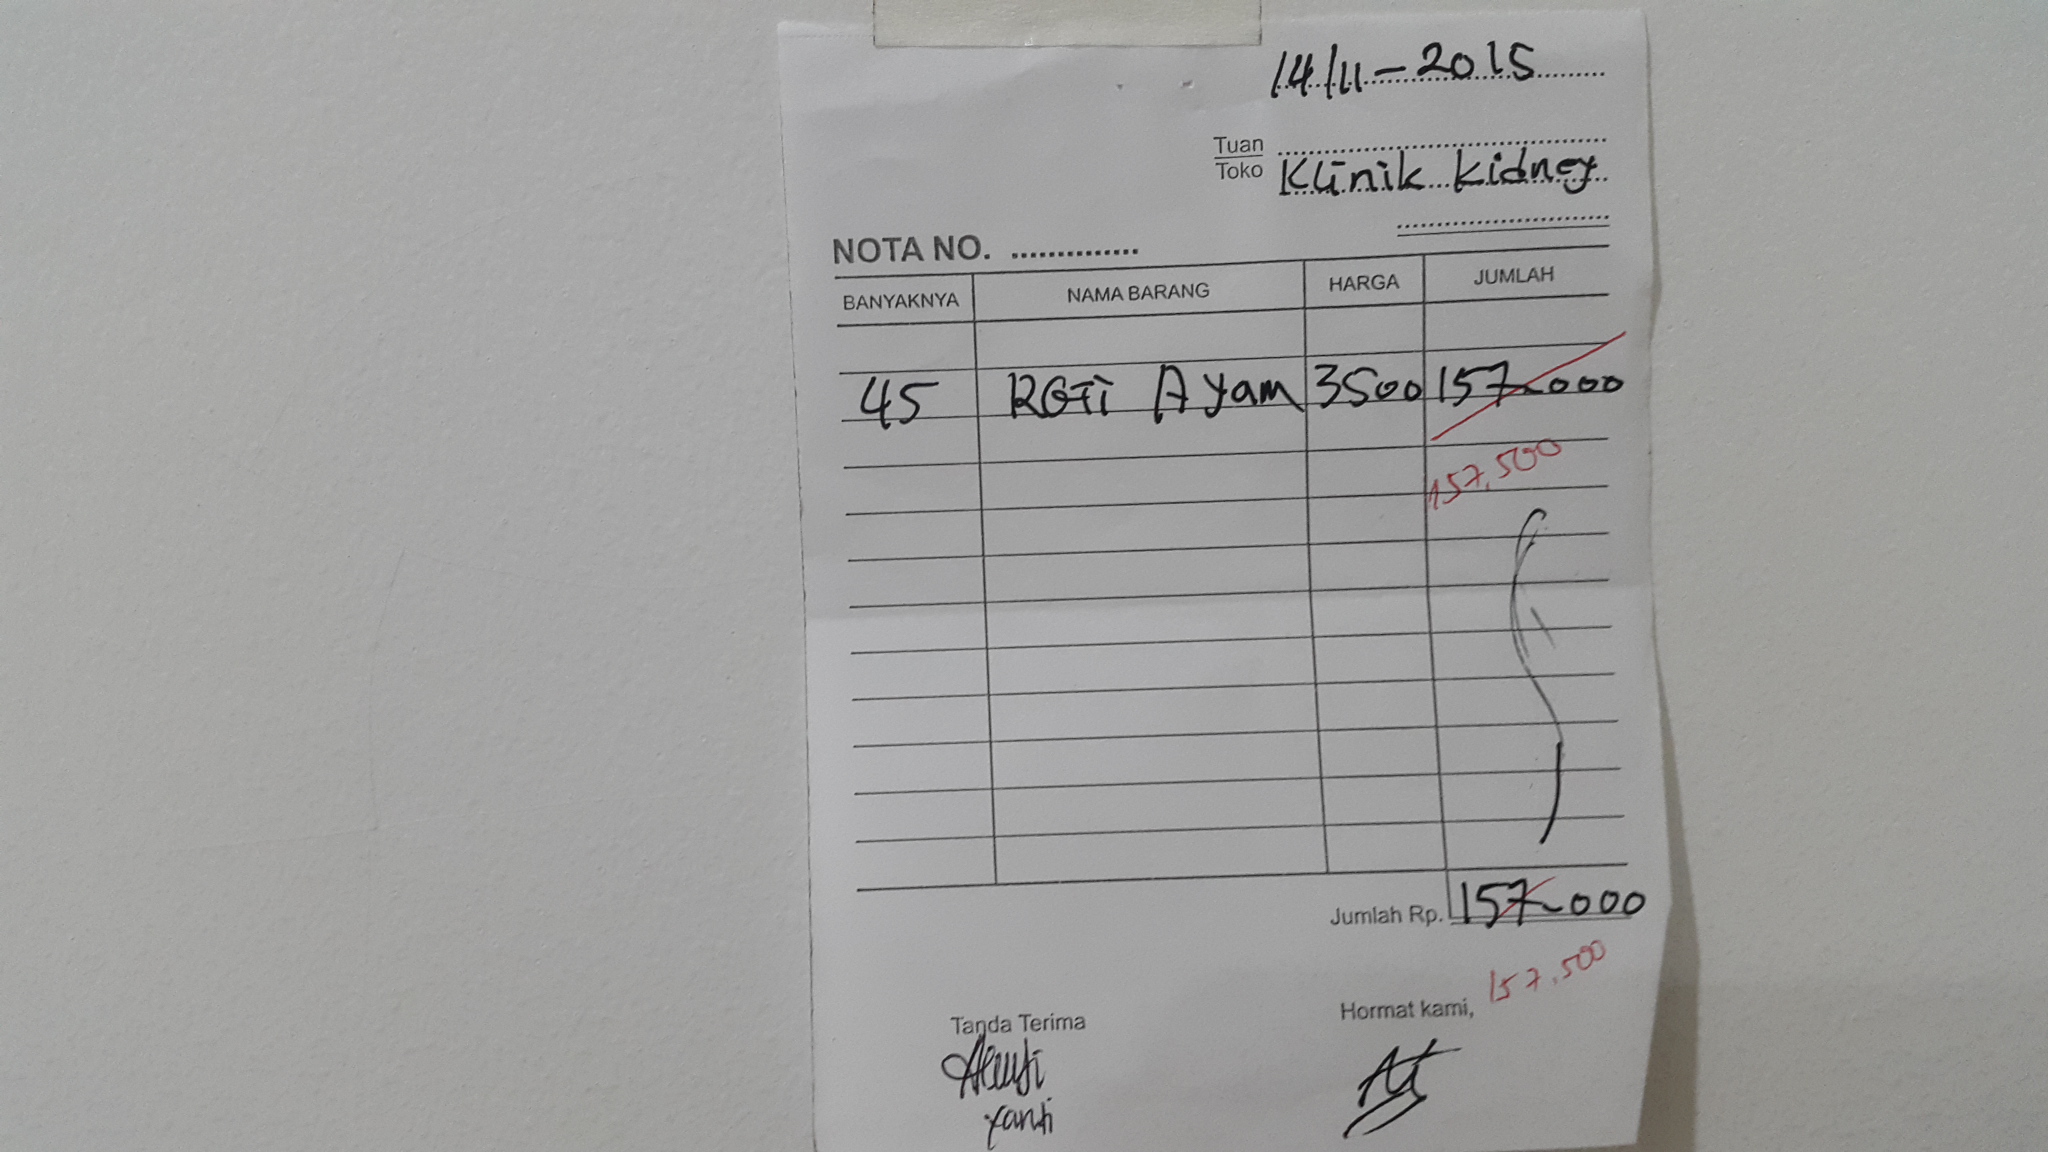 14/11-2015
Tuan
Toko Klinik Kidney
NOTA NO. ..............
BANYAKNYA NAMA BARANG HARGA JUMLAH
45 Roti Ayam 3500 157.000
157.500
Jumlah Rp. 157.000
157.500
Tanda Terima Hormat kami,
Yanti